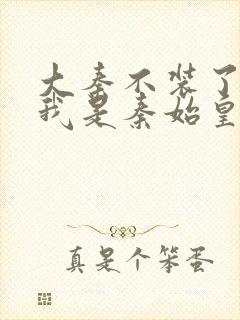 大秦不装了
我是秦始皇
真是个笨蛋